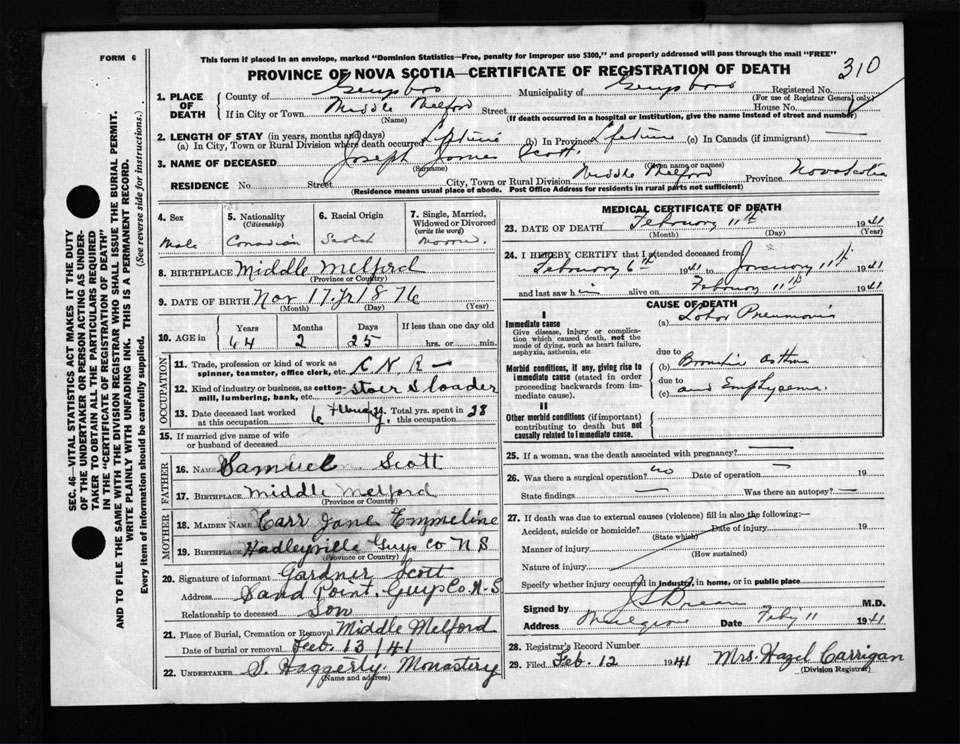 FORM 6
This form if placed in an envelope, marked "Dominion Statistics—Free, penalty for improper use $300," and properly addressed will pass through the mail "FREE"
PROVINCE OF NOVA SCOTIA—CERTIFICATE OF REGISTRATION OF DEATH
310
1. PLACE OF DEATH
County of Guysboro Municipality of Guysboro Registered No.
(For use of Registrar General only)
If in City or Town Middle Melford Street House No.
(Name) (If death occurred in a hospital or institution, give the name instead of street and number)
2. LENGTH OF STAY (in years, months and days)
(a) In City, Town or Rural Division where death occurred Lifetime (b) In Province Lifetime (c) In Canada (if immigrant) —
3. NAME OF DECEASED Joseph James Scott.
(Surname) (Given name or names)
RESIDENCE No Street City, Town or Rural Division Middle Melford Province Nova Scotia
(Residence means usual place of abode. Post Office Address for residents in rural parts not sufficient)
4. Sex
Male
5. Nationality
(Citizenship)
Canadian
6. Racial Origin
Scotch
7. Single, Married, Widowed or Divorced
(write the word)
8. BIRTHPLACE Middle Melford
(Province or Country)
9. DATE OF BIRTH Nov 17 1876
(Month) (Day) (Year)
10. AGE in
Years Months Days If less than one day old
64 2 25 hrs. or min.
OCCUPATION
11. Trade, profession or kind of work as spinner, teamster, office clerk, etc. C N R —
12. Kind of industry or business, as cotton-mill, lumbering, bank, etc.
13. Date deceased last worked at this occupation 6 Total yrs. spent in this occupation 28
15. If married give name of wife or husband of deceased
FATHER
16. NAME Samuel Scott
17. BIRTHPLACE Middle Melford
(Province or Country)
MOTHER
18. MAIDEN NAME Carr Jane Emmeline
19. BIRTHPLACE Hadleyville Guys Co N S
(Province or Country)
20. Signature of informant Gardner Scott
Address Sand Point, Guys Co. N-S
Relationship to deceased Son
21. Place of Burial, Cremation or Removal Middle Melford
Date of burial or removal Feb. 13/41
22. UNDERTAKER S. Haggerty. Monastery
(Name and address)
MEDICAL CERTIFICATE OF DEATH
23. DATE OF DEATH February 11th 1941
(Month) (Day) (Year)
24. I HEREBY CERTIFY that I attended deceased from
February 6th 1941 to 11th 1941
and last saw him alive on February 11th 1941
CAUSE OF DEATH
I
Immediate cause
Give disease, injury or complication which caused death, not the mode of dying, such as heart failure, asphyxia, asthenia, etc
(a) Lobar Pneumonia
Morbid conditions, if any, giving rise to immediate cause (stated in order proceeding backwards from immediate cause).
due to
(b) Bronchial Asthma
due to
(c) and Emphysema.
II
Other morbid conditions (if important) contributing to death but not causally related to immediate cause.
25. If a woman, was the death associated with pregnancy? —
26. Was there a surgical operation? no Date of operation — 19
State findings — Was there an autopsy? —
27. If death was due to external causes (violence) fill in also the following:—
Accident, suicide or homicide? Date of injury 19
(State which)
Manner of injury
(How sustained)
Nature of injury
Specify whether injury occurred in industry, in home, or in public place
Signed by M.D.
Address Mulgrave Date Feb'y 11 1941
28. Registrar's Record Number
29. Filed Feb. 12 1941 Mrs. Hazel Carrigan
(Division Registrar)
SEC. 46—VITAL STATISTICS ACT MAKES IT THE DUTY OF THE UNDERTAKER OR PERSON ACTING AS UNDERTAKER TO OBTAIN ALL THE PARTICULARS REQUIRED IN THE "CERTIFICATE OF REGISTRATION OF DEATH" AND TO FILE THE SAME WITH THE DIVISION REGISTRAR WHO SHALL ISSUE THE BURIAL PERMIT.
WRITE PLAINLY WITH UNFADING INK. THIS IS A PERMANENT RECORD.
Every item of information should be carefully supplied. (See reverse side for instructions.)